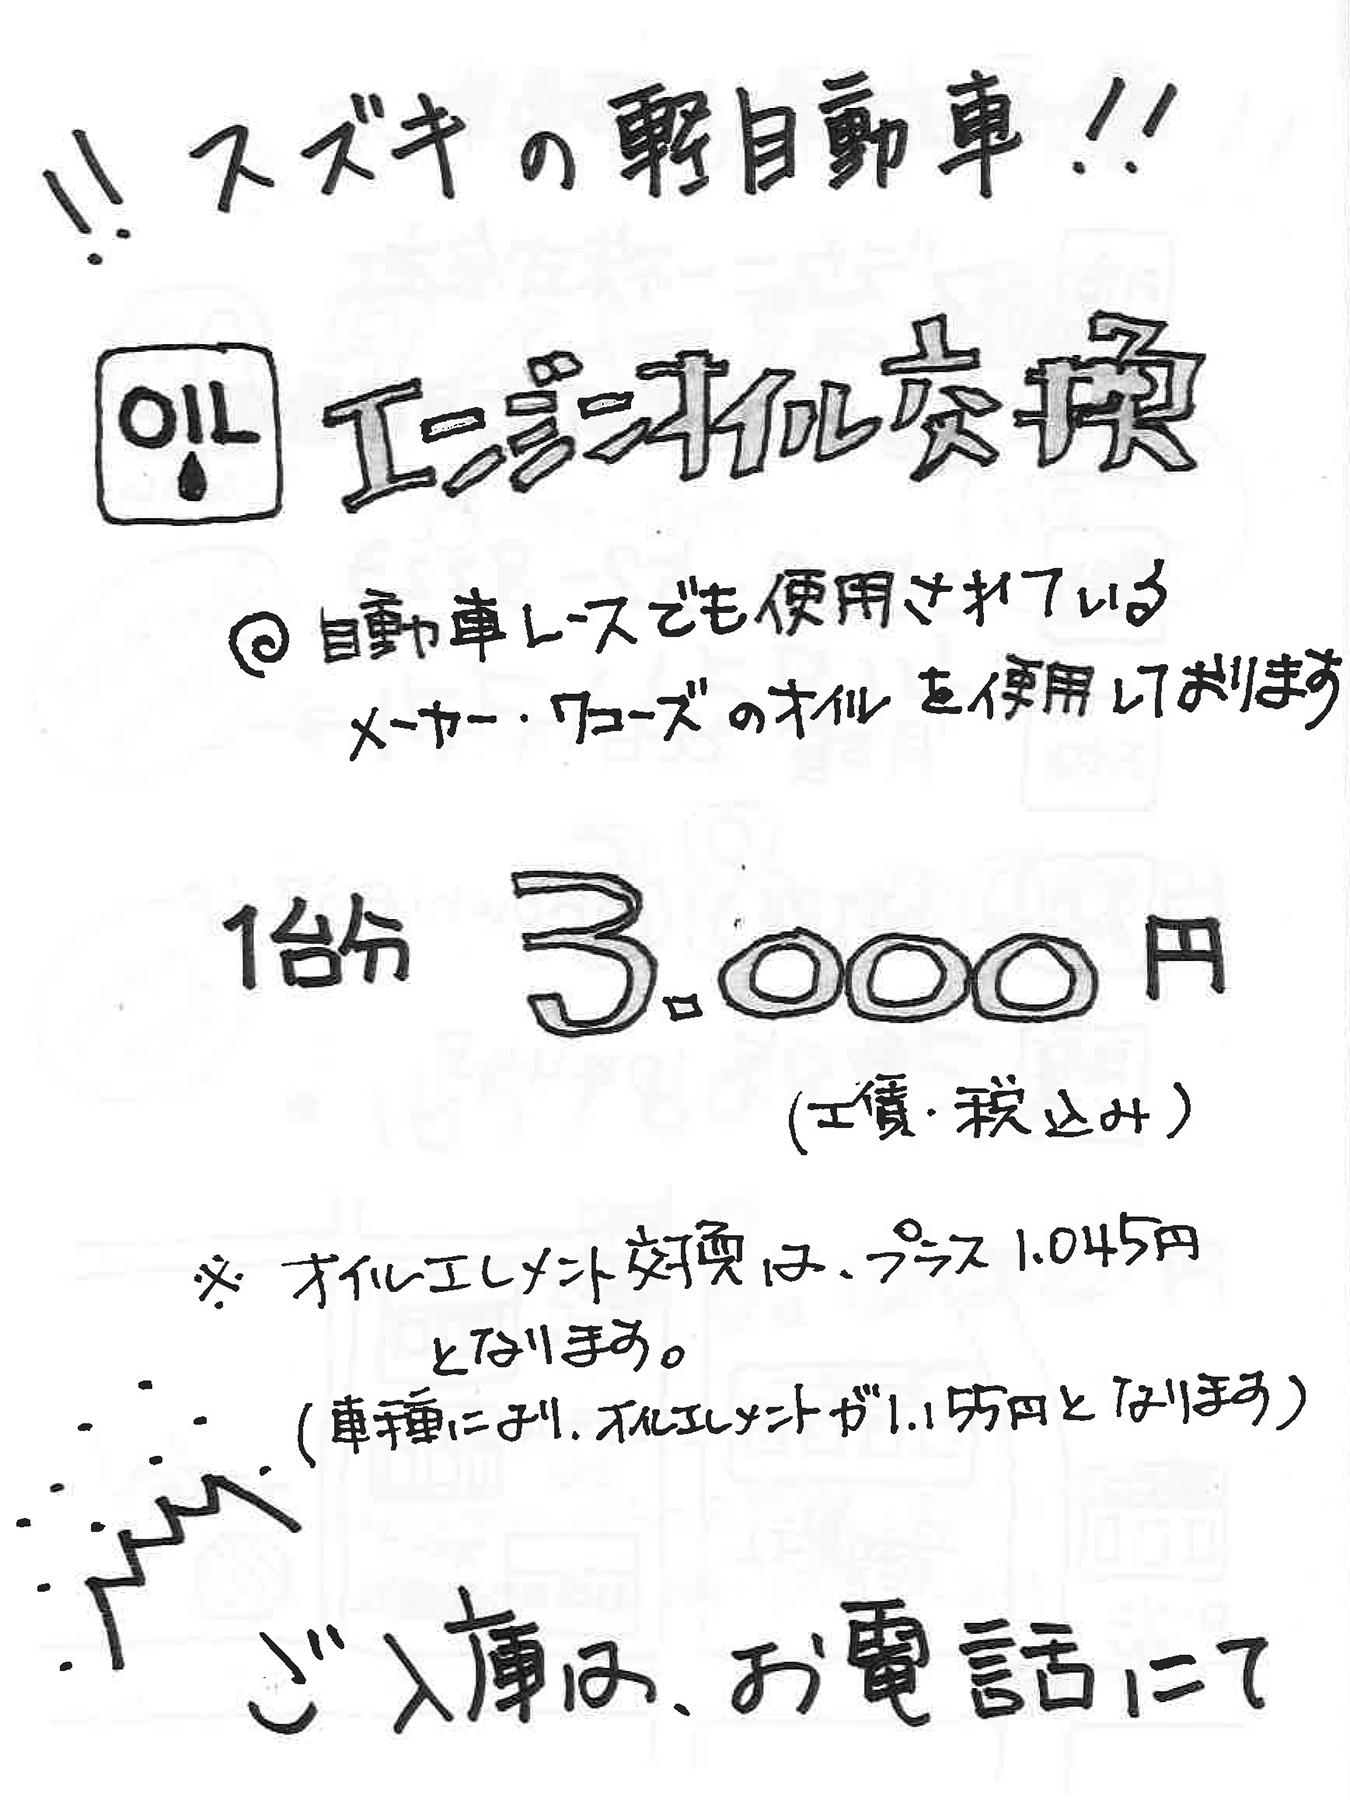 !! スズキの軽自動車!!
OIL エンジンオイル交換
◎ 自動車レースでも使用されている
メーカー・ワコーズのオイルを使用しております
1台分 3.000円
(工債・税込み)
※ オイルエレメント交換は、プラス1.045円
となります。
(車種により、オイルエレメントが1.155円となります)
ご入庫は、お電話にて